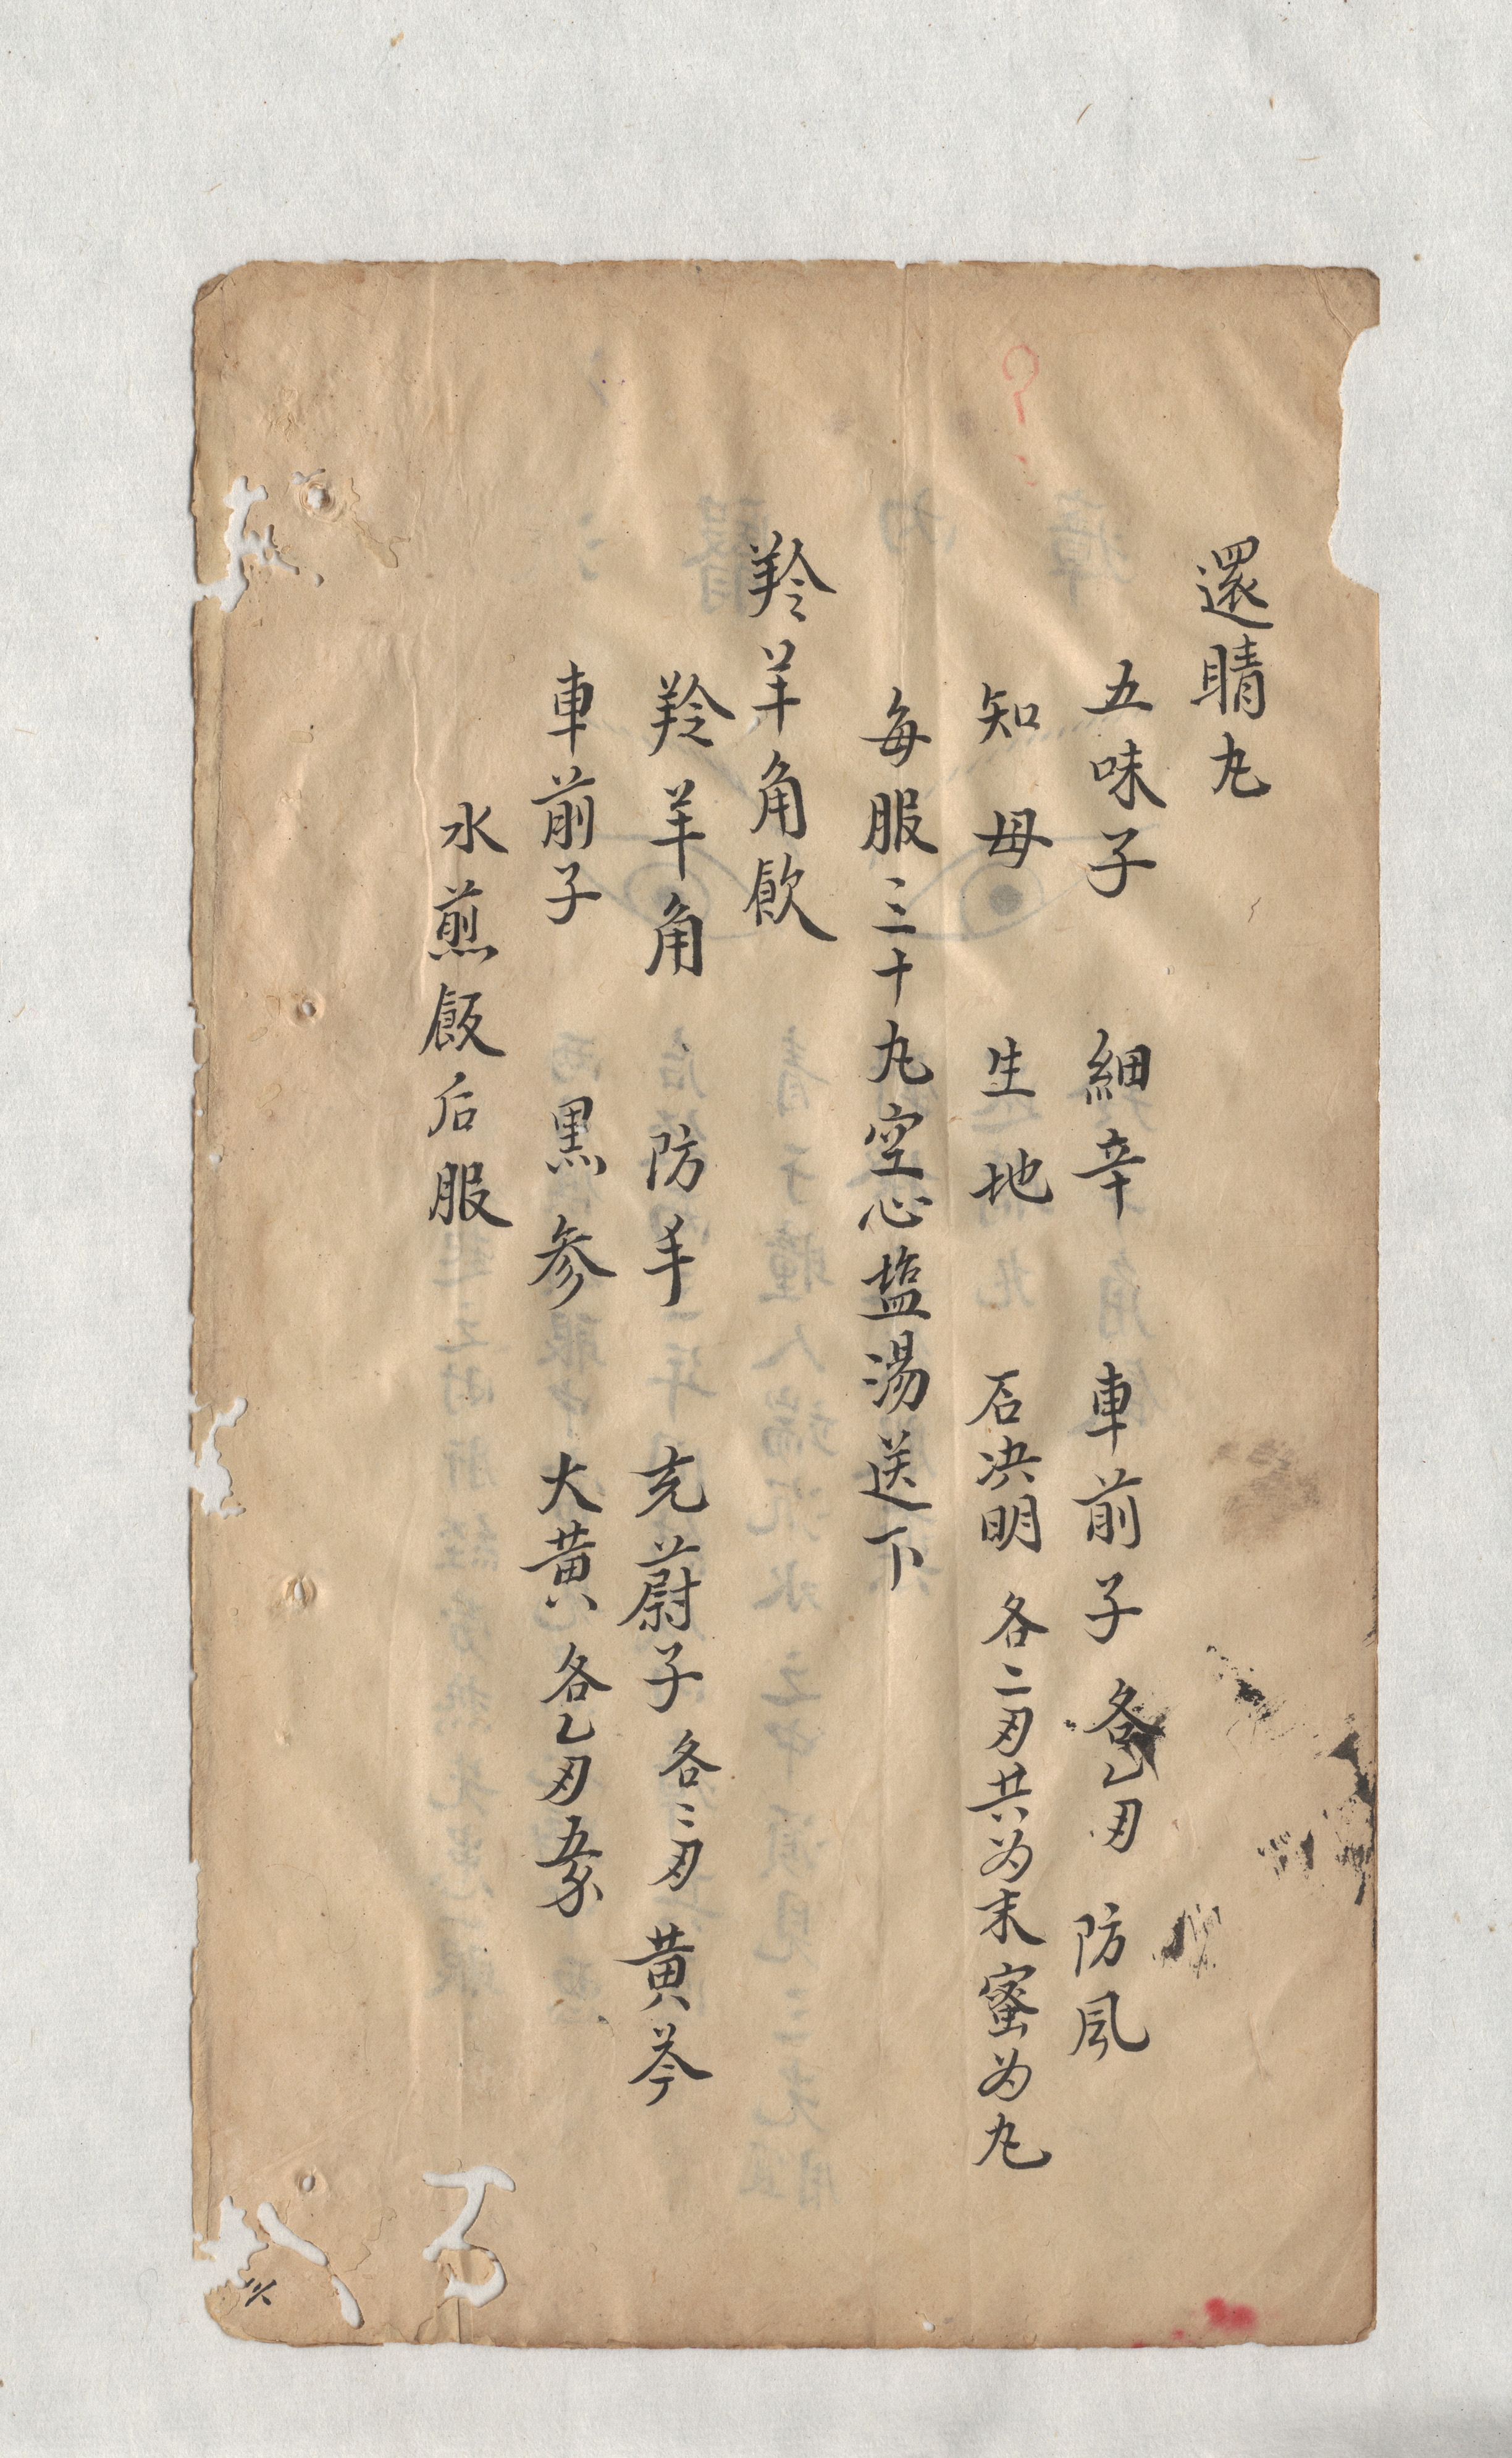 還睛丸
五味子 細辛 車前子 各乙刄 防風
知母 生地 石决明 各二刄共为末蜜为丸
每服三十丸空心盐湯送下
羚羊角飲
羚羊角 防丰 充蔚子 各二刄 黄芩
車前子 黑参 大黄 各乙刄
水煎飯后服